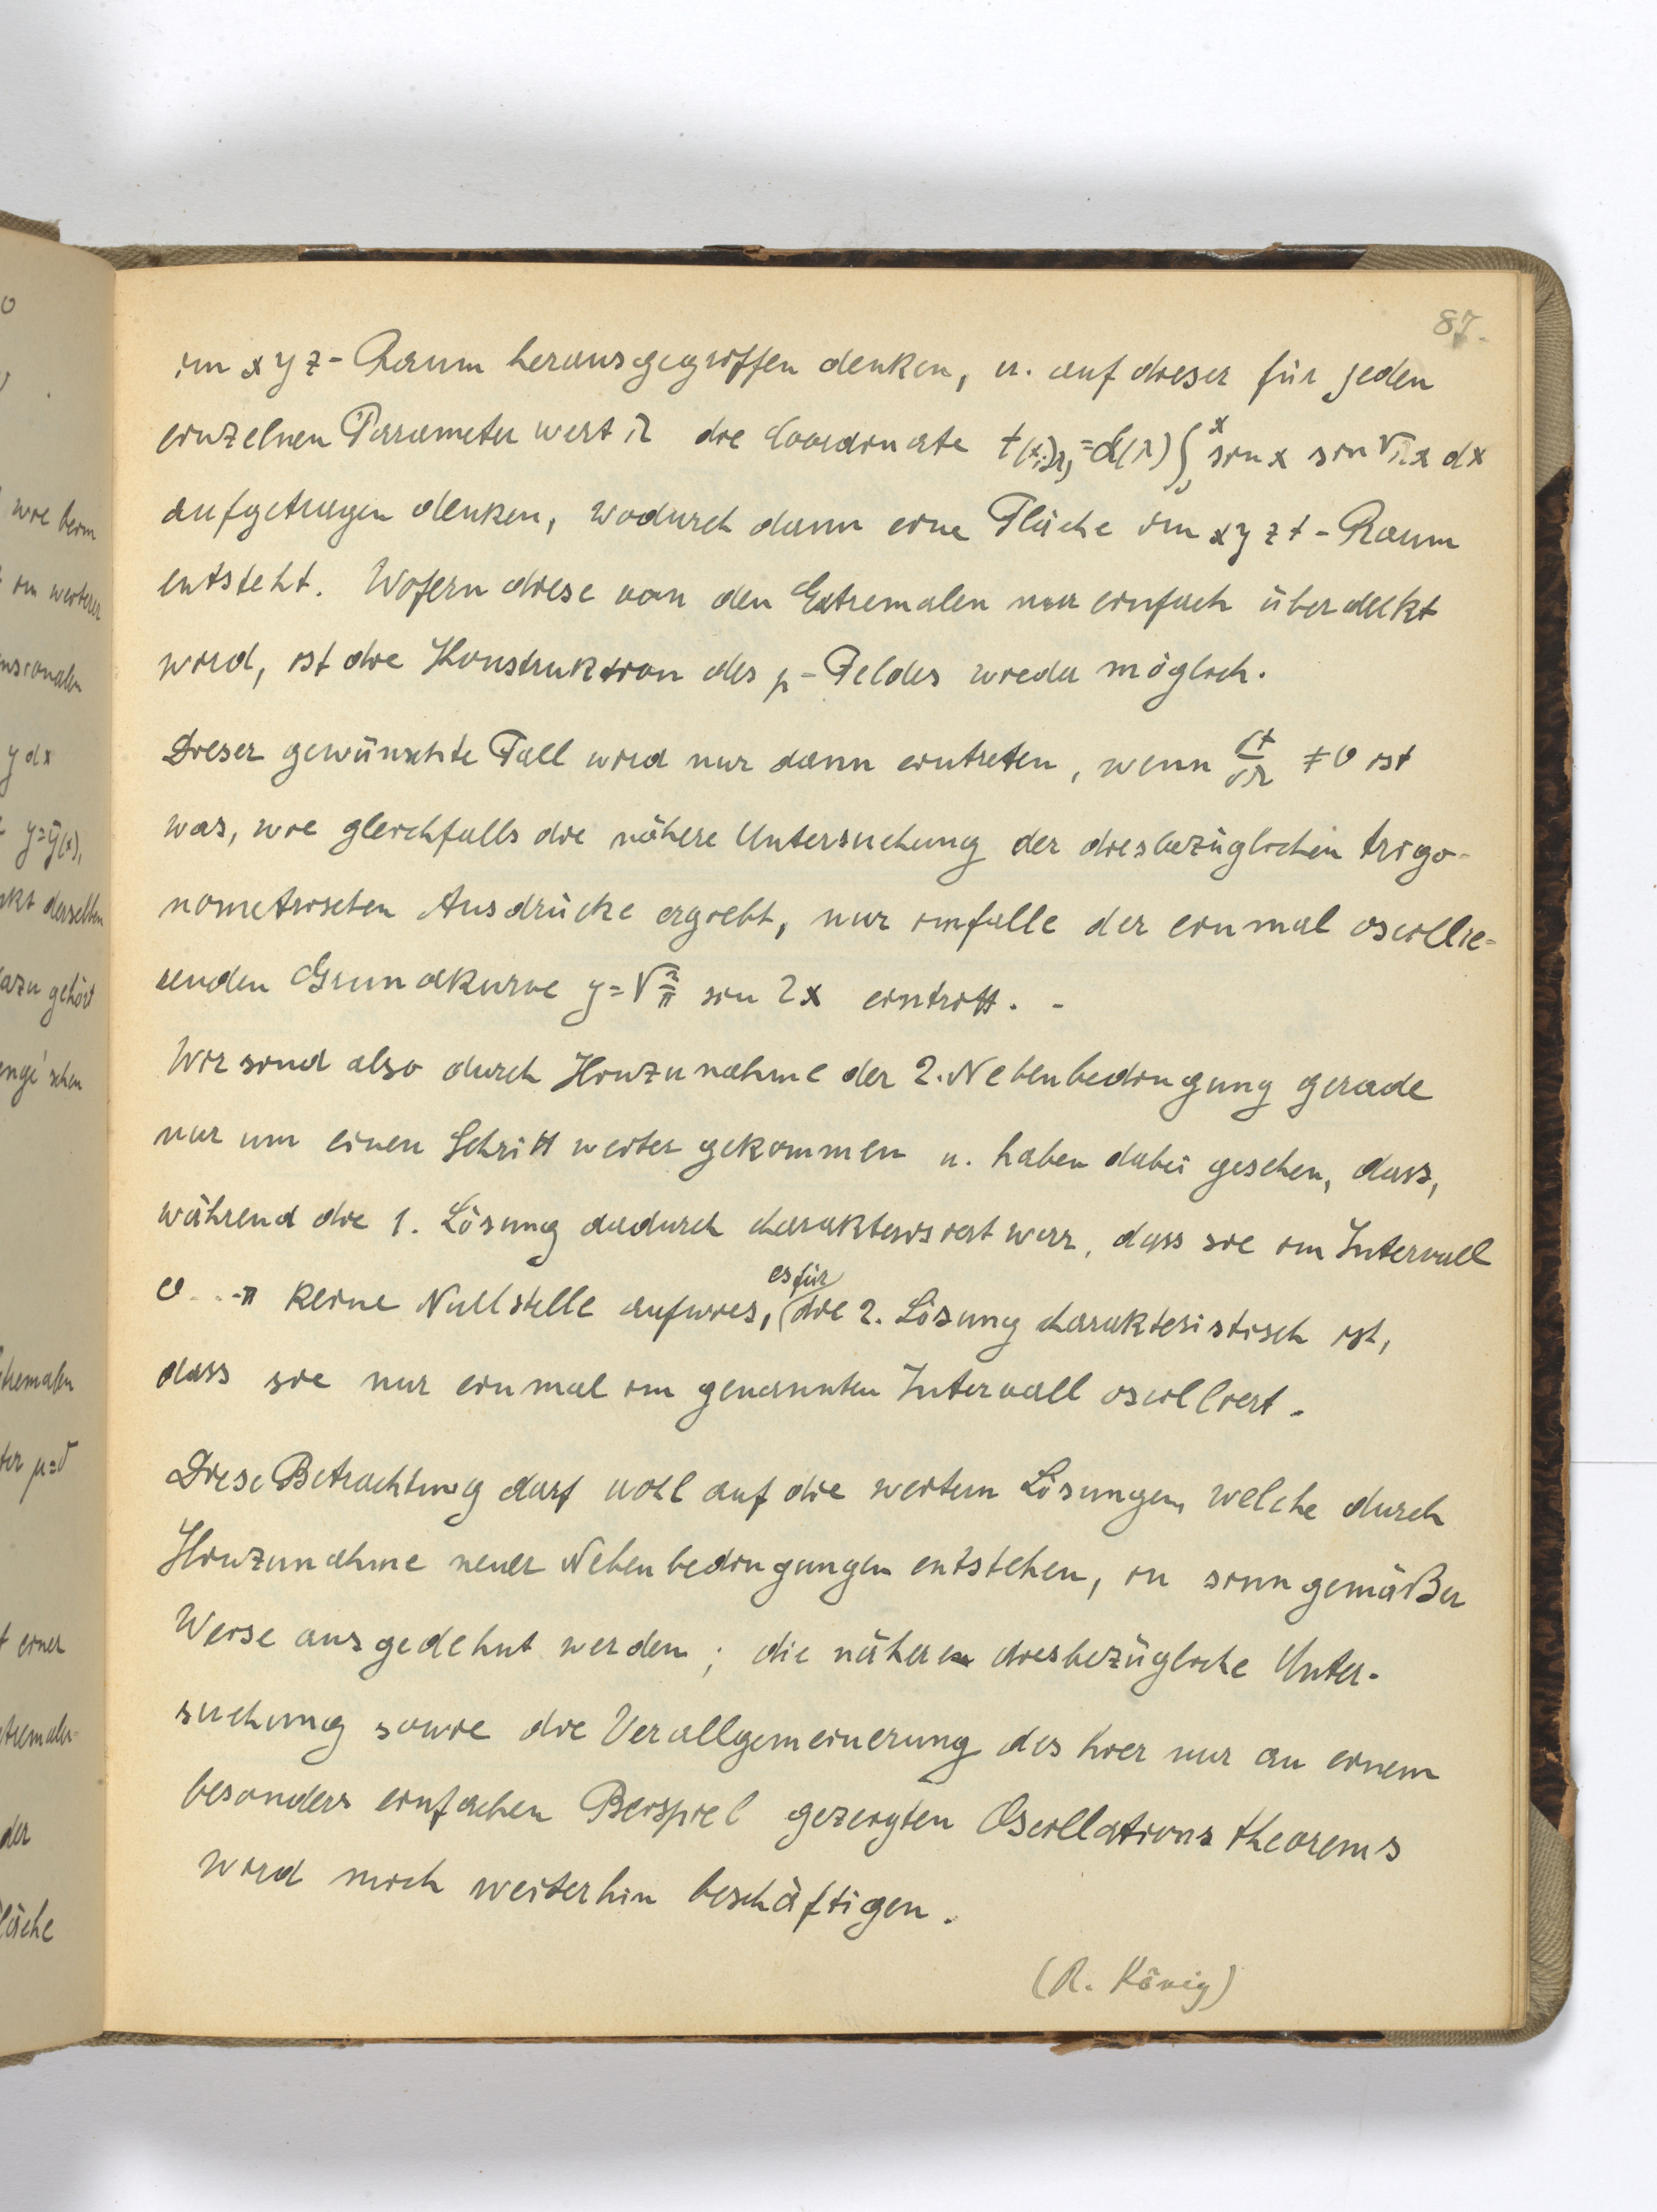 87.
im xyz-Raum herausgegriffen denken, u. auf dieser für jeden
einzelnen Parameterwert λ die Coordinate t(x;λ) = α(λ) ∫₀ˣ sin x sin √λ x dx
aufgetragen denken, wodurch dann eine Fläche im xyzt-Raum
entsteht. Wofern diese von den Extremalen nur einfach überdeckt
wird, ist die Konstruktion des p-Feldes wieder möglich.
Dieser gewünschte Fall wird nur dann eintreten, wenn ∂t/∂λ ≠ 0 ist
was, wie gleichfalls die nähere Untersuchung der diesbezüglichen trigo-
nometrischen Ausdrücke ergiebt, nur imfalle der einmal oscillie-
renden Grundkurve y = √2/π sin 2x eintritt. -
Wir sind also durch Hinzunahme der 2. Nebenbedingung gerade
nur um einen Schritt weiter gekommen u. haben dabei gesehen, dass,
während die 1. Lösung dadurch charakterisiert war, dass sie im Intervall
0...π keine Nullstelle aufwies, es für die 2. Lösung charakteristisch ist,
dass sie nur einmal im genannten Intervall oscilliert.
Diese Betrachtung darf wohl auf die weitern Lösungen, welche durch
Hinzunahme neuer Nebenbedingungen entstehen, in sinngemäßer
Weise ausgedehnt werden; die nähere diesbezügliche Unter-
suchung sowie die Verallgemeinerung des hier nur an einem
besonders einfachen Beispiel gezeigten Oscillationstheorems
wird mich weiterhin beschäftigen.
(R. König)
wie beim
in weiterer
nsionalen
y dx
y=ȳ(x),
kt derselben
dazu gehört
enge'schen
tremalen
t einer
der
läche